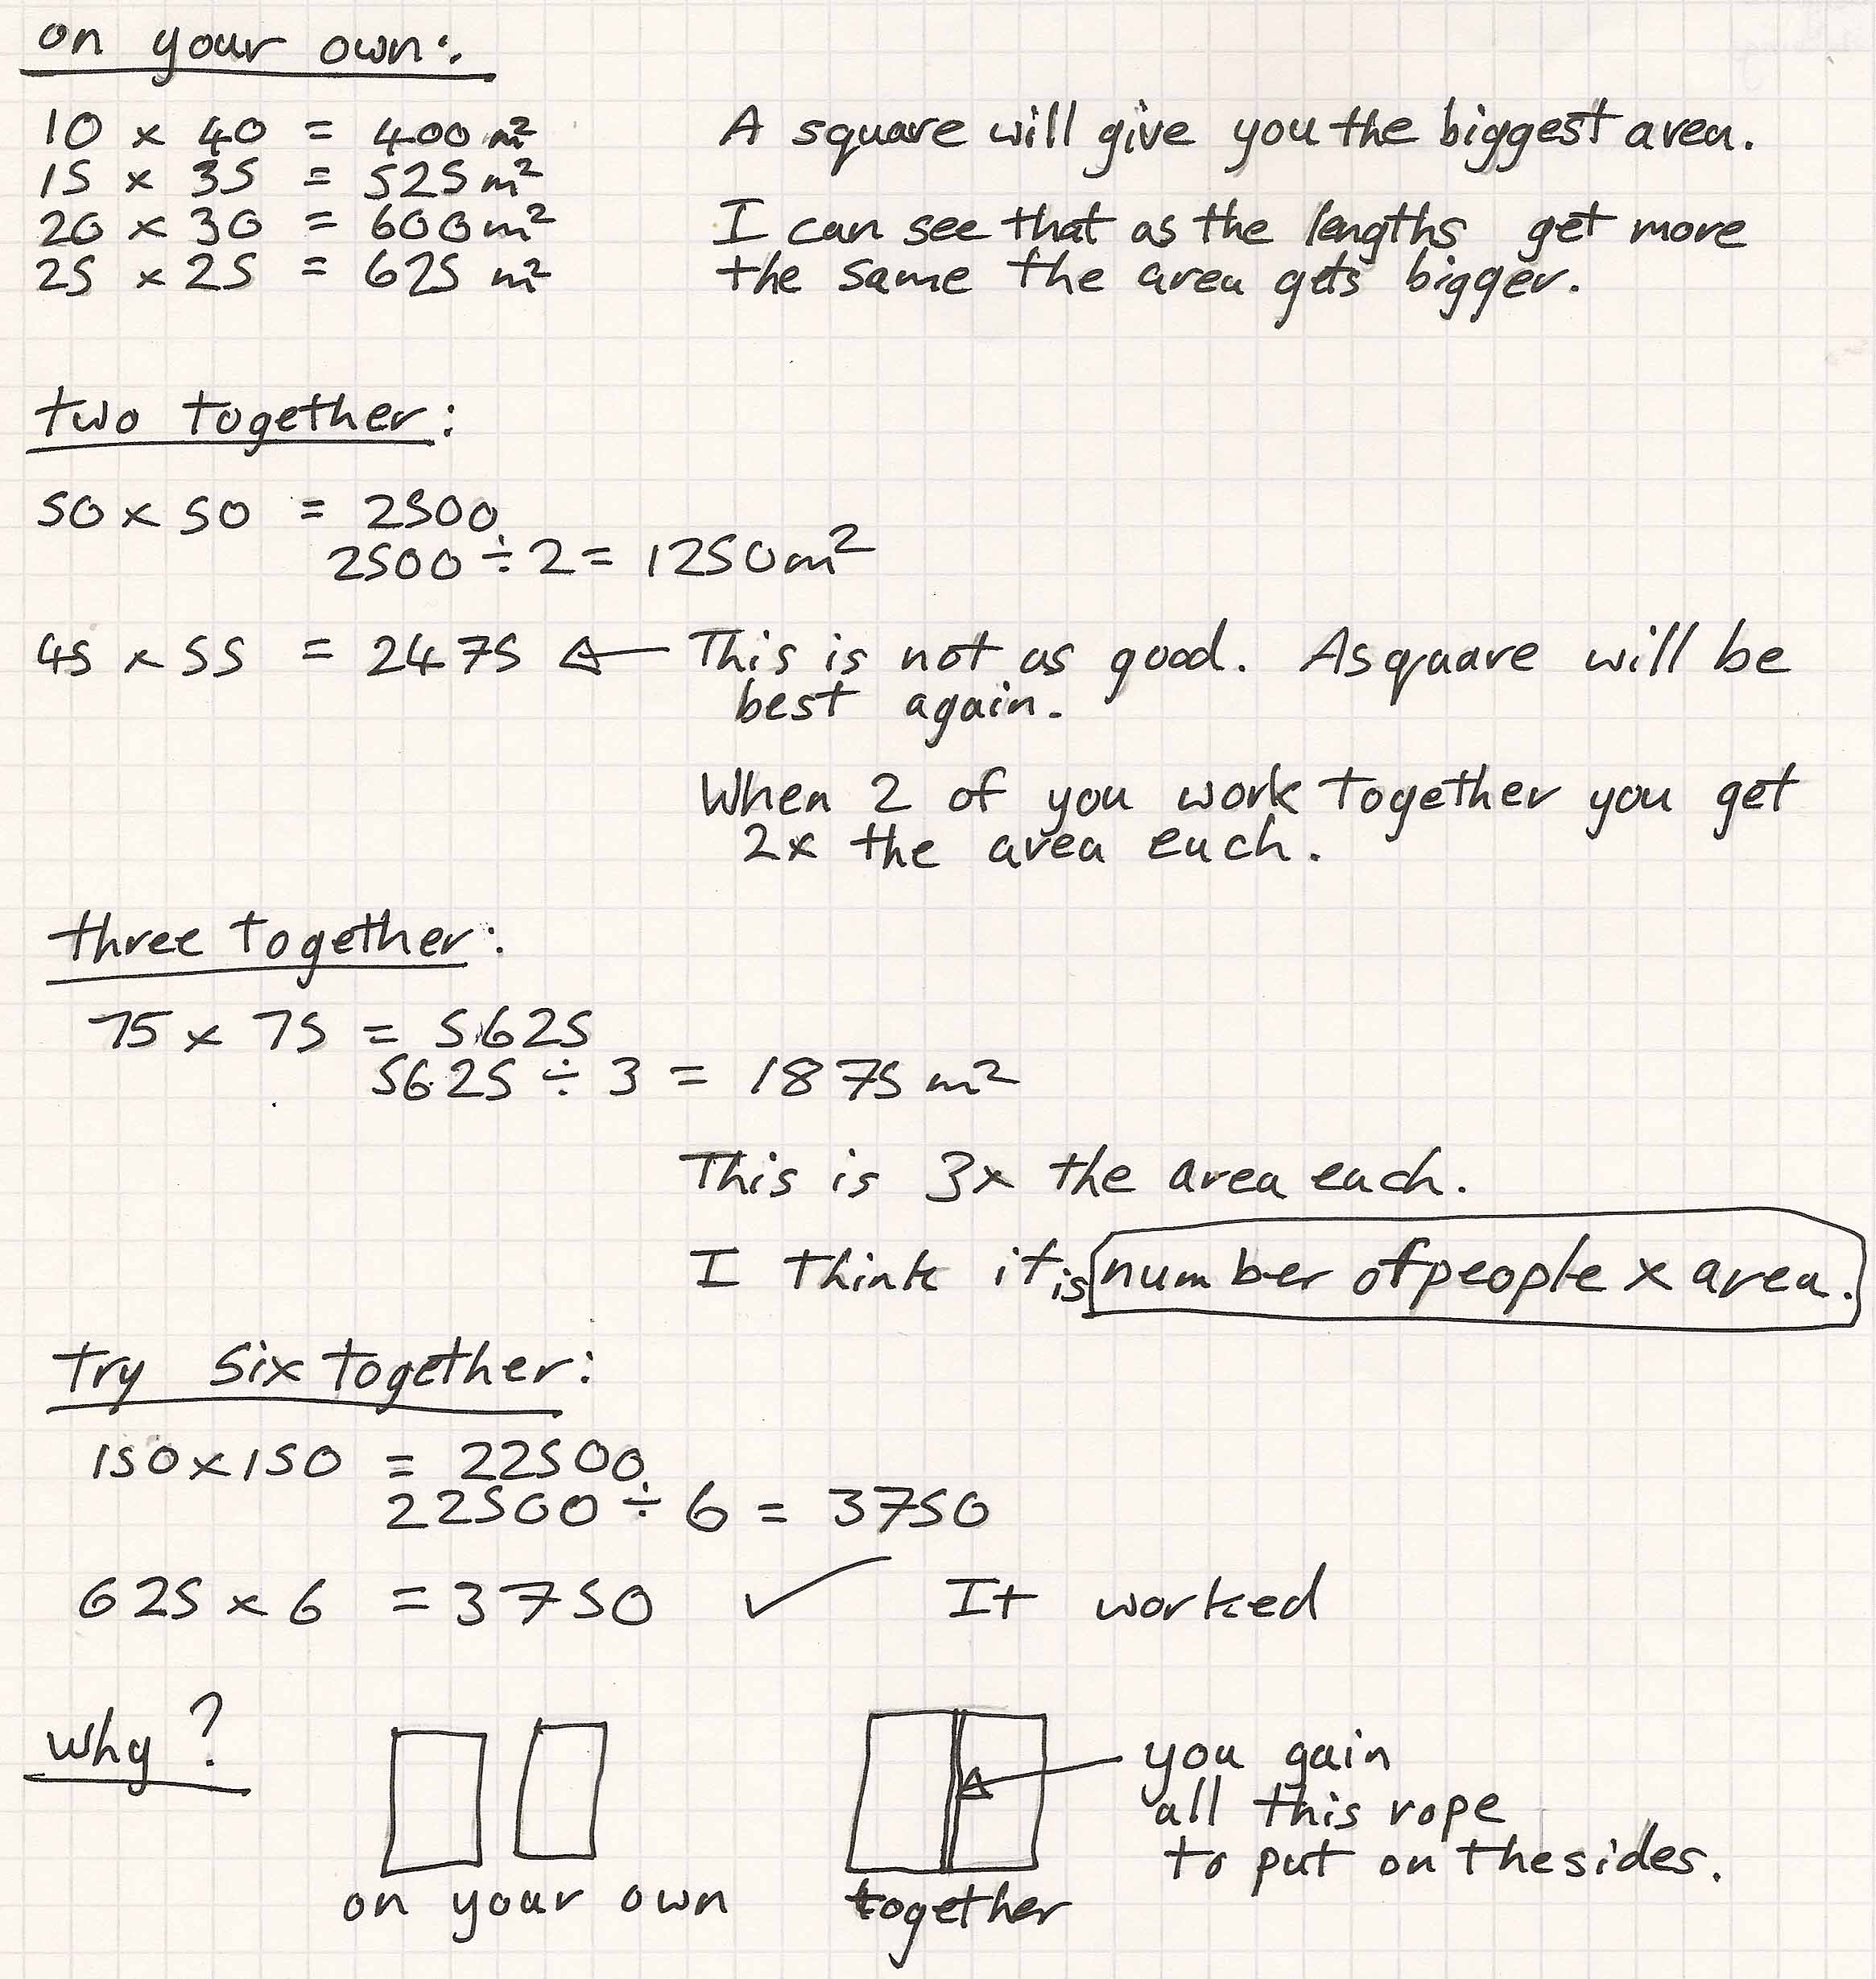 on your own:
10 x 40 = 400 m²
15 x 35 = 525 m²
20 x 30 = 600 m²
25 x 25 = 625 m²
A square will give you the biggest area.
I can see that as the lengths get more
the same the area gets bigger.
two together:
50 x 50 = 2500
2500 ÷ 2 = 1250 m²
45 x 55 = 2475 ← This is not as good. A squaare will be
best again.
When 2 of you work together you get
2x the area each.
three together:
75 x 75 = 5625
5625 ÷ 3 = 1875 m²
This is 3x the area each.
I think it is number of people x area.
try six together:
150 x 150 = 22500
22500 ÷ 6 = 3750
625 x 6 = 3750 ✓ It worked
why?
on your own
together
you gain
all this rope
to put on the sides.